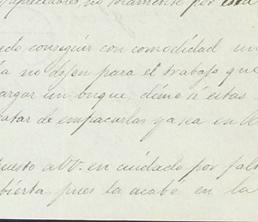 apreciables, no solamente por esta
do conseguir con comodidad un
a no dejen para el trabajo que
argar un buque, dém si estas
atar de empacarlas ya sea en
uesto a V. en cuidado por fal
bierta pues la acabo en la